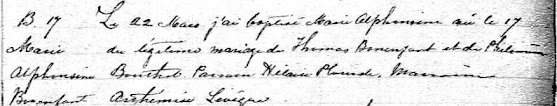 B. 17 Le 22 Mars j'ai baptisé Marie Alphonsine née le 17
Marie du légitime mariage de Thomas Bonenfant et de Philomène
Alphonsine Bouchet. Parrain Hilaire Plourde, Marraine
Bonenfant Arthémise Lévêque